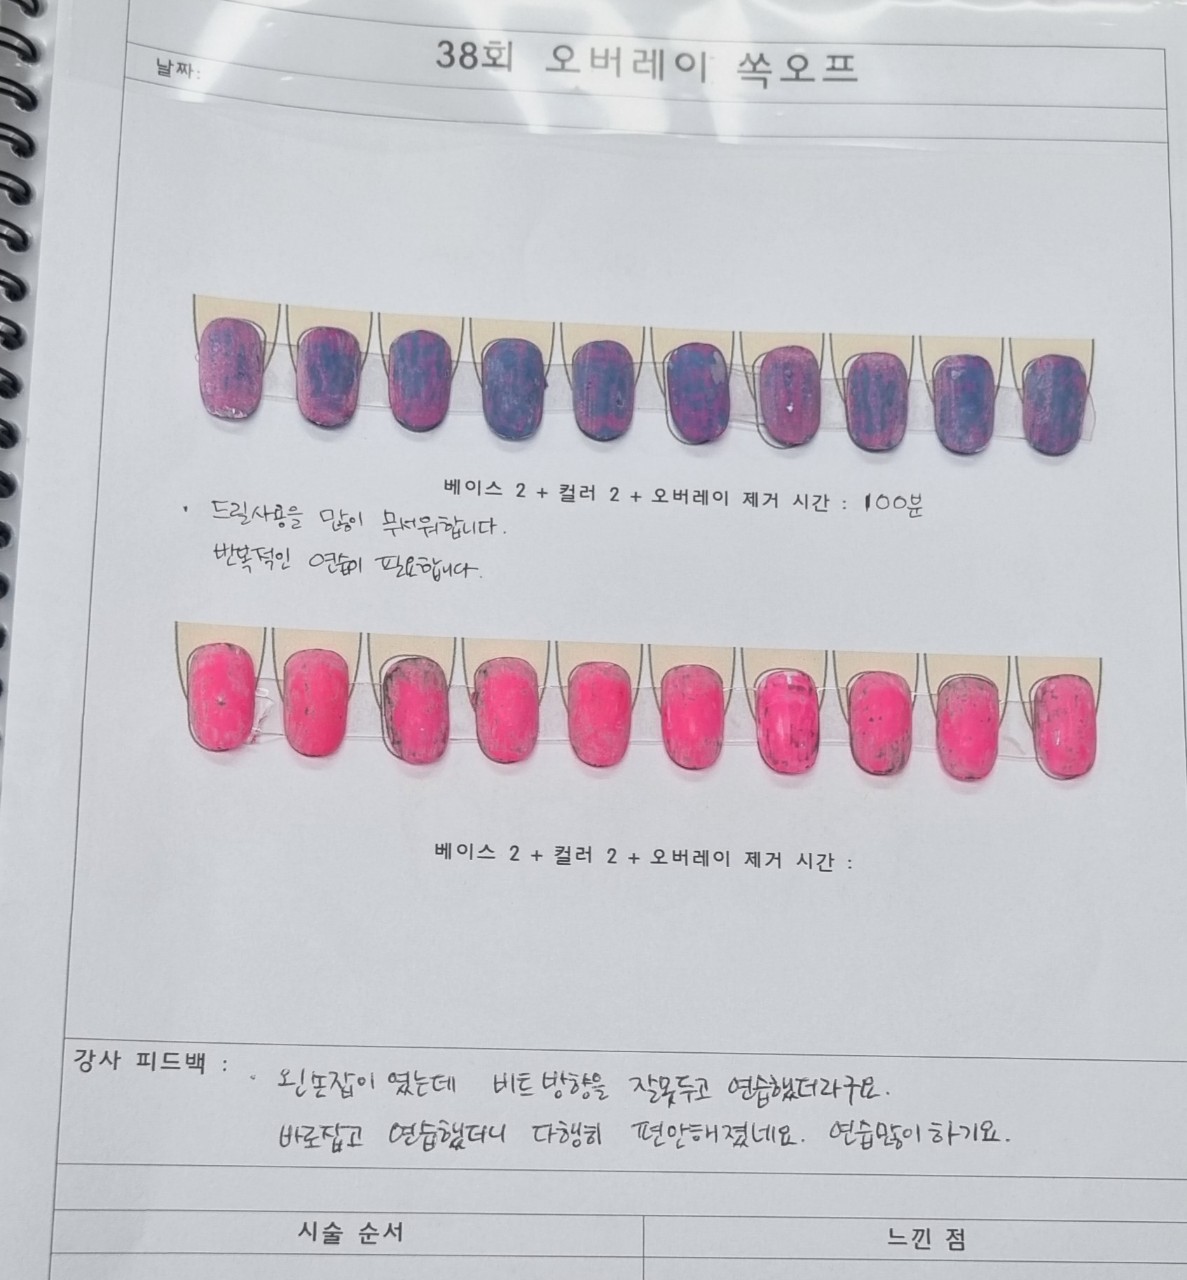 38회 오버레이 쏙오프
날짜:
베이스 2 + 컬러 2 + 오버레이 제거 시간 : 100분
· 드릴사용을 많이 무서워합니다.
반복적인 연습이 필요합니다.
베이스 2 + 컬러 2 + 오버레이 제거 시간 :
강사 피드백 : · 왼손잡이 였는데 비트 방향을 잘못두고 연습했더라구요.
바로잡고 연습했더니 다행히 편안해졌네요. 연습많이 하기요.
시술 순서
느낀 점